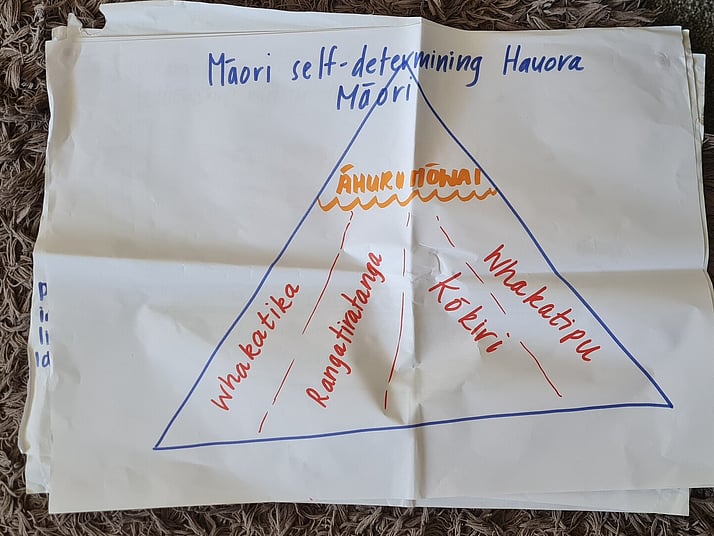 Māori self-determining Hauora
Māori
ĀHURU MŌWAI
Whakatika
Rangatiratanga
Kōkiri
Whakatipu